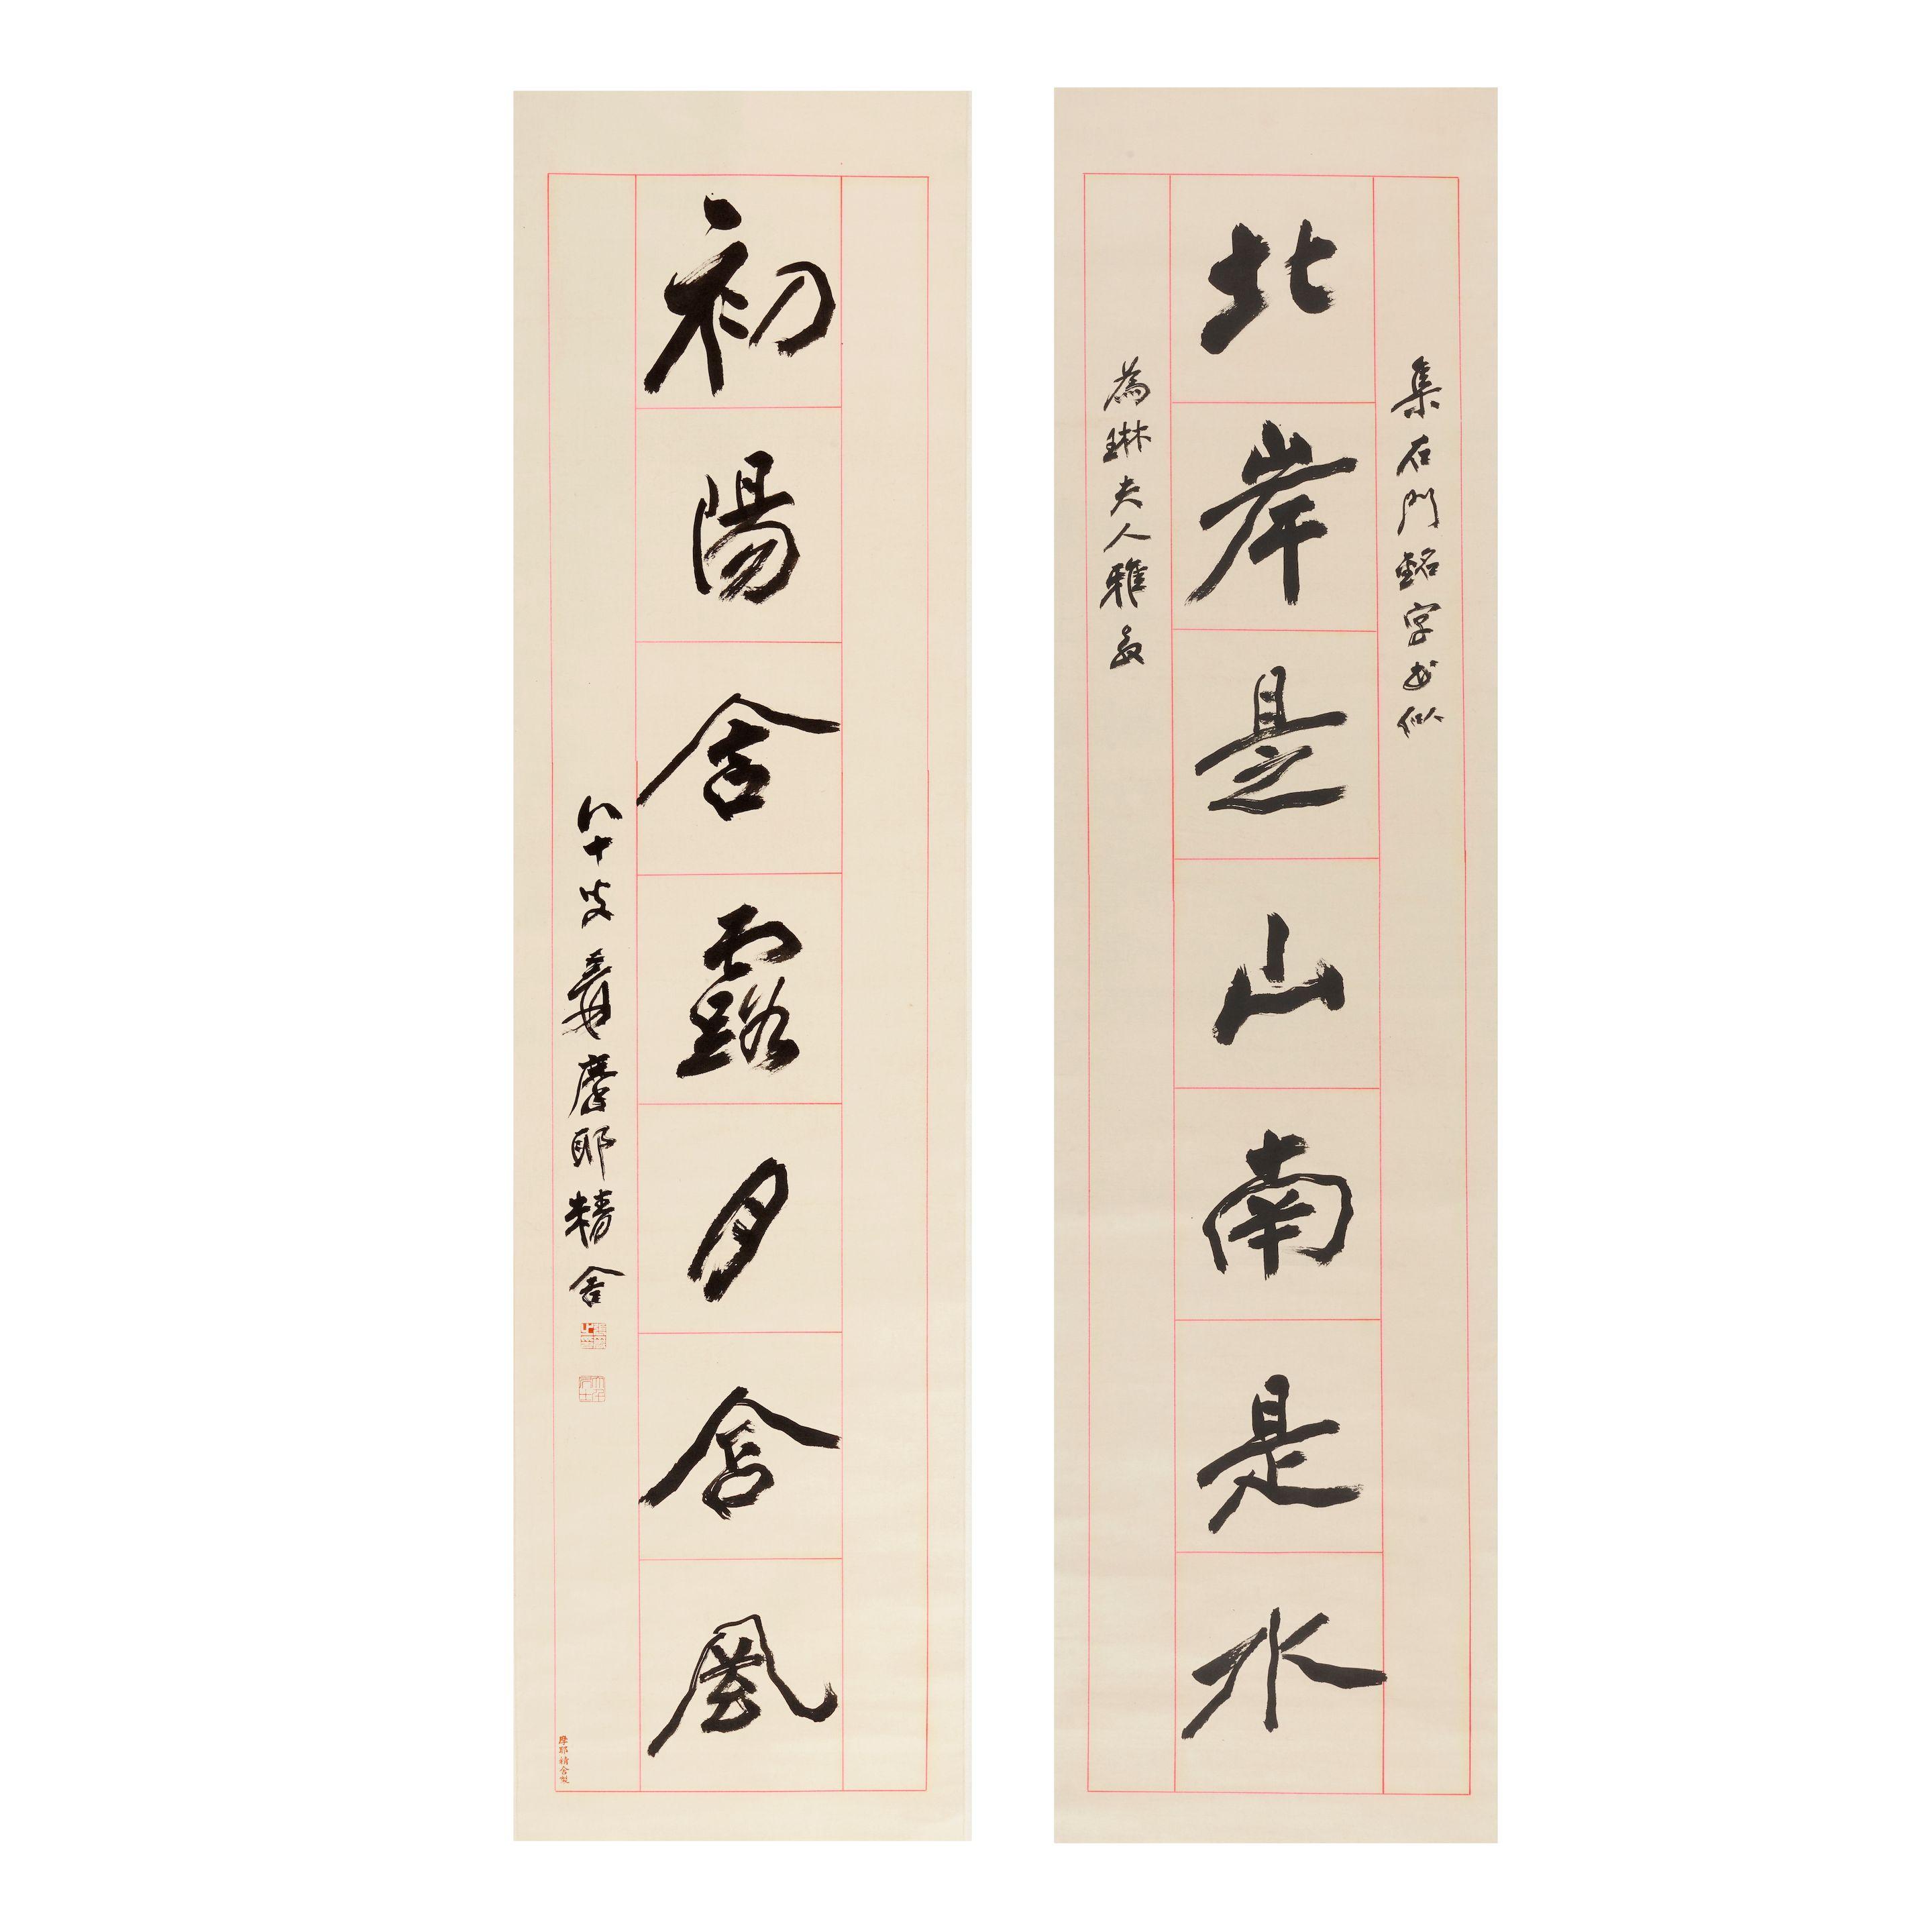 集石門銘字書似
北岸是山南是水
為琳夫人雅教
初陽含露月含風
八十叟爰摩耶精舍
摩耶精舍製